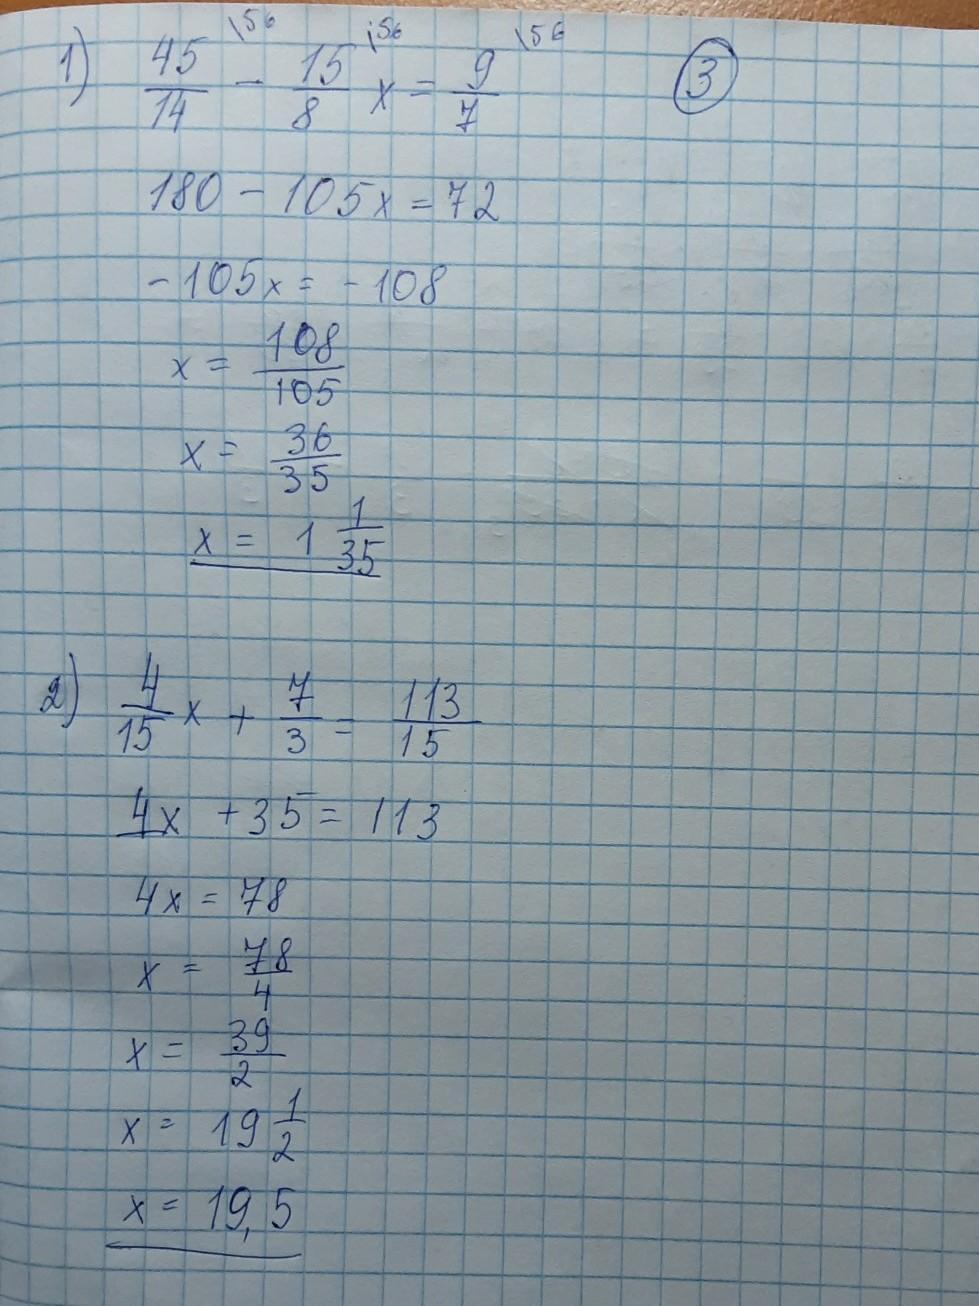 \56 \56 \56
1) 45/14 - 15/8 x = 9/7 3
180 - 105x = 72
- 105x = - 108
x = 108/105
x = 36/35
x = 1 1/35
2) 4/15 x + 7/3 = 113/15
4x + 35 = 113
4x = 78
x = 78/4
x = 39/2
x = 19 1/2
x = 19,5